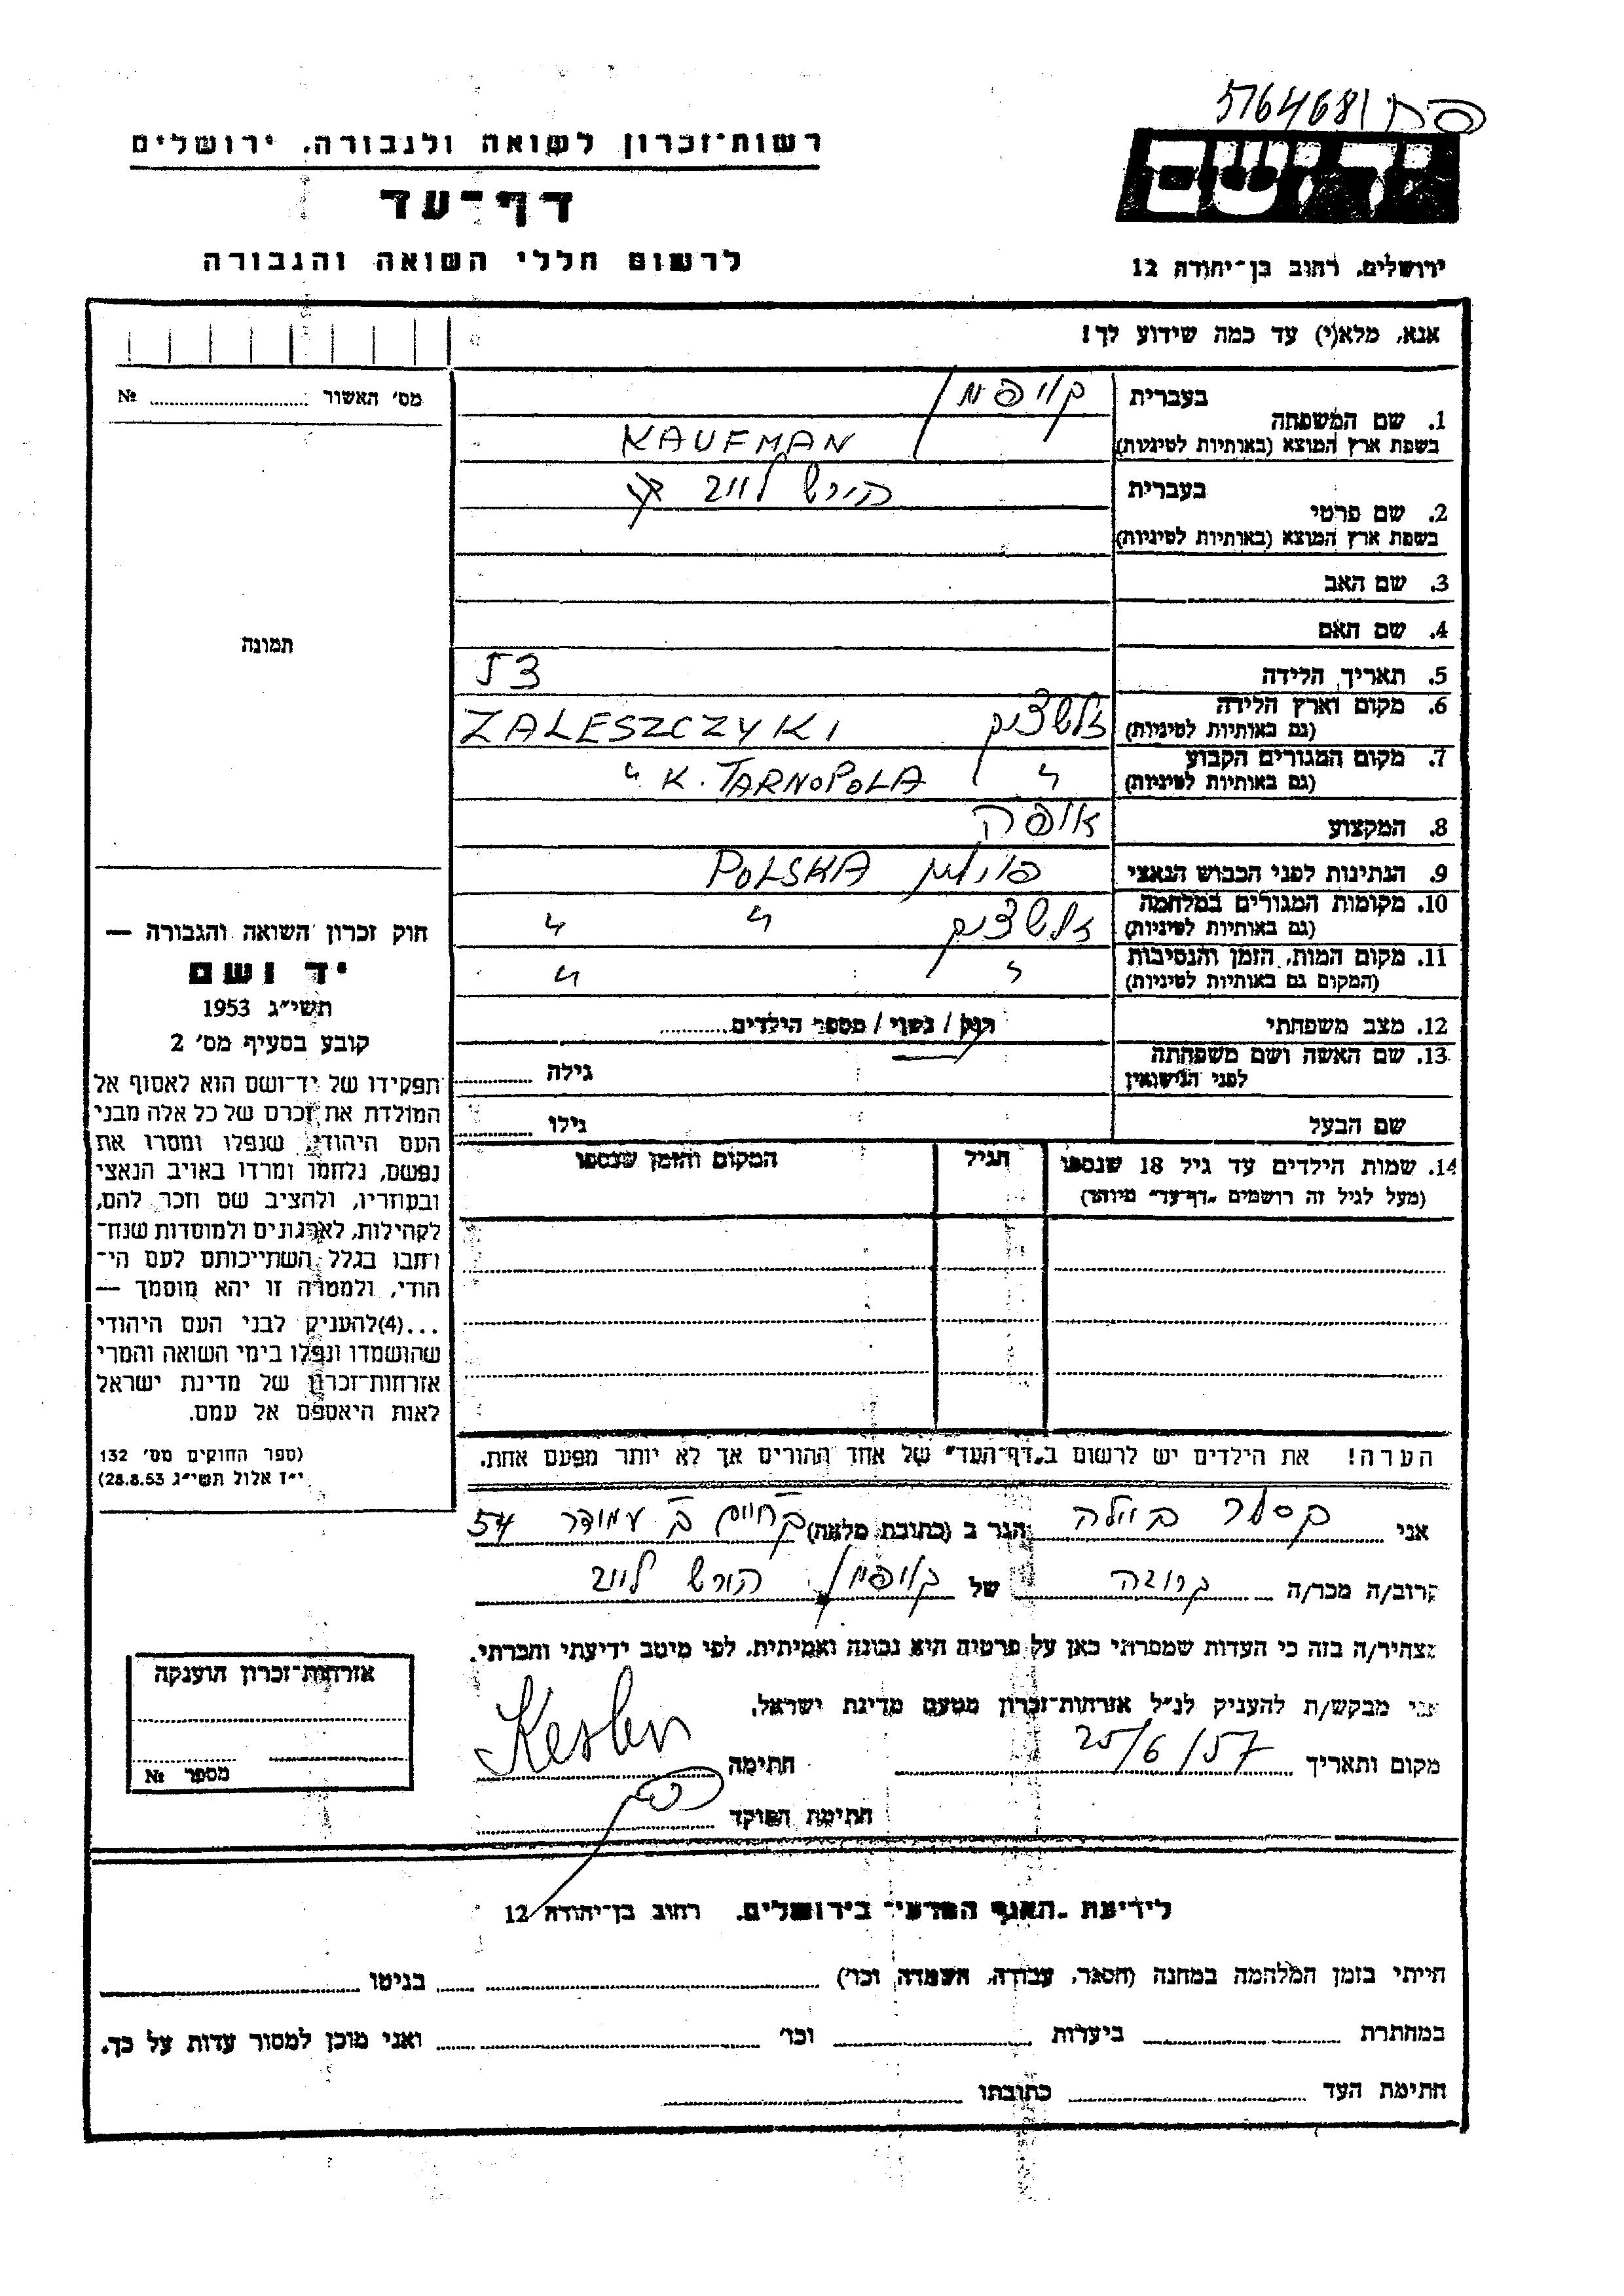 5764681
רשות־זכרון לשואה ולגבורה, ירושלים
דף־עד
לרשום חללי השואה והגבורה
ידושם
ירושלים, רחוב בן־יהודה 12
אנא, מלא(י) עד כמה שידוע לך!
מס׳ האשור ........ №
1. שם המשפחה
בעברית
קויפמן
בשפת ארץ המוצא (באותיות לטיניות)
KAUFMAN
2. שם פרטי
בעברית
הירש לייב
בשפת ארץ המוצא (באותיות לטיניות)
3. שם האב
4. שם האם
תמונה
5. תאריך הלידה
53
6. מקום וארץ הלידה
(גם באותיות לטיניות)
זלשציק ZALESZCZYKI
7. מקום המגורים הקבוע
(גם באותיות לטיניות)
״ ״ K. TARNOPOLA
8. המקצוע
אופה
9. הנתינות לפני הכבוש הנאצי
פולין POLSKA
10. מקומות המגורים במלחמה
(גם באותיות לטיניות)
זלשציק ״ ״
11. מקום המות, הזמן והנסיבות
(המקום גם באותיות לטיניות)
״ ״
12. מצב משפחתי
רוק / נשוי / מספר הילדים........
13. שם האשה ושם משפחתה
לפני הנישואין
גילה ........
שם הבעל
גילו ........
14. שמות הילדים עד גיל 18 שנספו
(מעל לגיל זה רושמים „דף־עד״ מיוחד)
הגיל
המקום והזמן שנספו
חוק זכרון השואה והגבורה —
יד ושם
תשי״ג 1953
קובע בסעיף מס׳ 2
תפקידו של יד־ושם הוא לאסוף אל
המולדת את זכרם של כל אלה מבני
העם היהודי, שנפלו ומסרו את
נפשם, נלחמו ומרדו באויב הנאצי
ובעוזריו, ולהציב שם וזכר להם,
לקהילות, לארגונים ולמוסדות שנח־
רחבו בגלל השתייכותם לעם הי־
הודי, ולמטרה זו יהא מוסמך —
...(4) להעניק לבני העם היהודי
שהושמדו ונפלו בימי השואה והמרי
אזרחות־זכרון של מדינת ישראל
לאות היאספם אל עמם.
(ספר החוקים מס׳ 132
י״ז אלול תשי״ג 28.8.53)
הערה! את הילדים יש לרשום ב„דף־העד״ של אחד ההורים אך לא יותר מפעם אחת.
אני קסלר ביילה הגר ב (כתובת מלאה) ק חיים ב עמודר 54
קרוב/ה מכר/ה קרובה של קויפמן הירש לייב
מצהיר/ה בזה כי העדות שמסרתי כאן על פרטיה היא נכונה ואמיתית, לפי מיטב ידיעתי והכרתי.
אני מבקש/ת להעניק לנ״ל אזרחות־זכרון מטעם מדינת ישראל.
מקום ותאריך 25/6/57 חתימה Kesler
חתימת הפוקד
אזרחות־זכרון הוענקה
מספר №
לידיעת „האגף המדעי״ בירושלים, רחוב בן־יהודה 12
הייתי בזמן המלחמה במחנה (הסגר, עבודה, השמדה, וכו׳) ........ בגיטו ........
במחתרת ........ ביערות ........ וכו׳ ........ ואני מוכן למסור עדות על כך.
חתימת העד ........ כתובתו ........